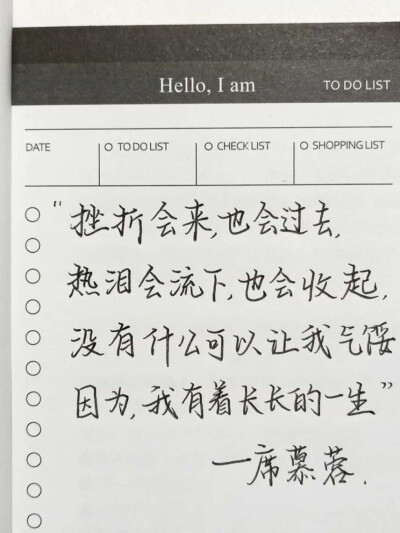 Hello, I am
TO DO LIST
DATE
TO DO LIST
CHECK LIST
SHOPPING LIST
“挫折会来,也会过去,
热泪会流下,也会收起,
没有什么可以让我气馁
因为,我有着长长的一生”
—席慕蓉.